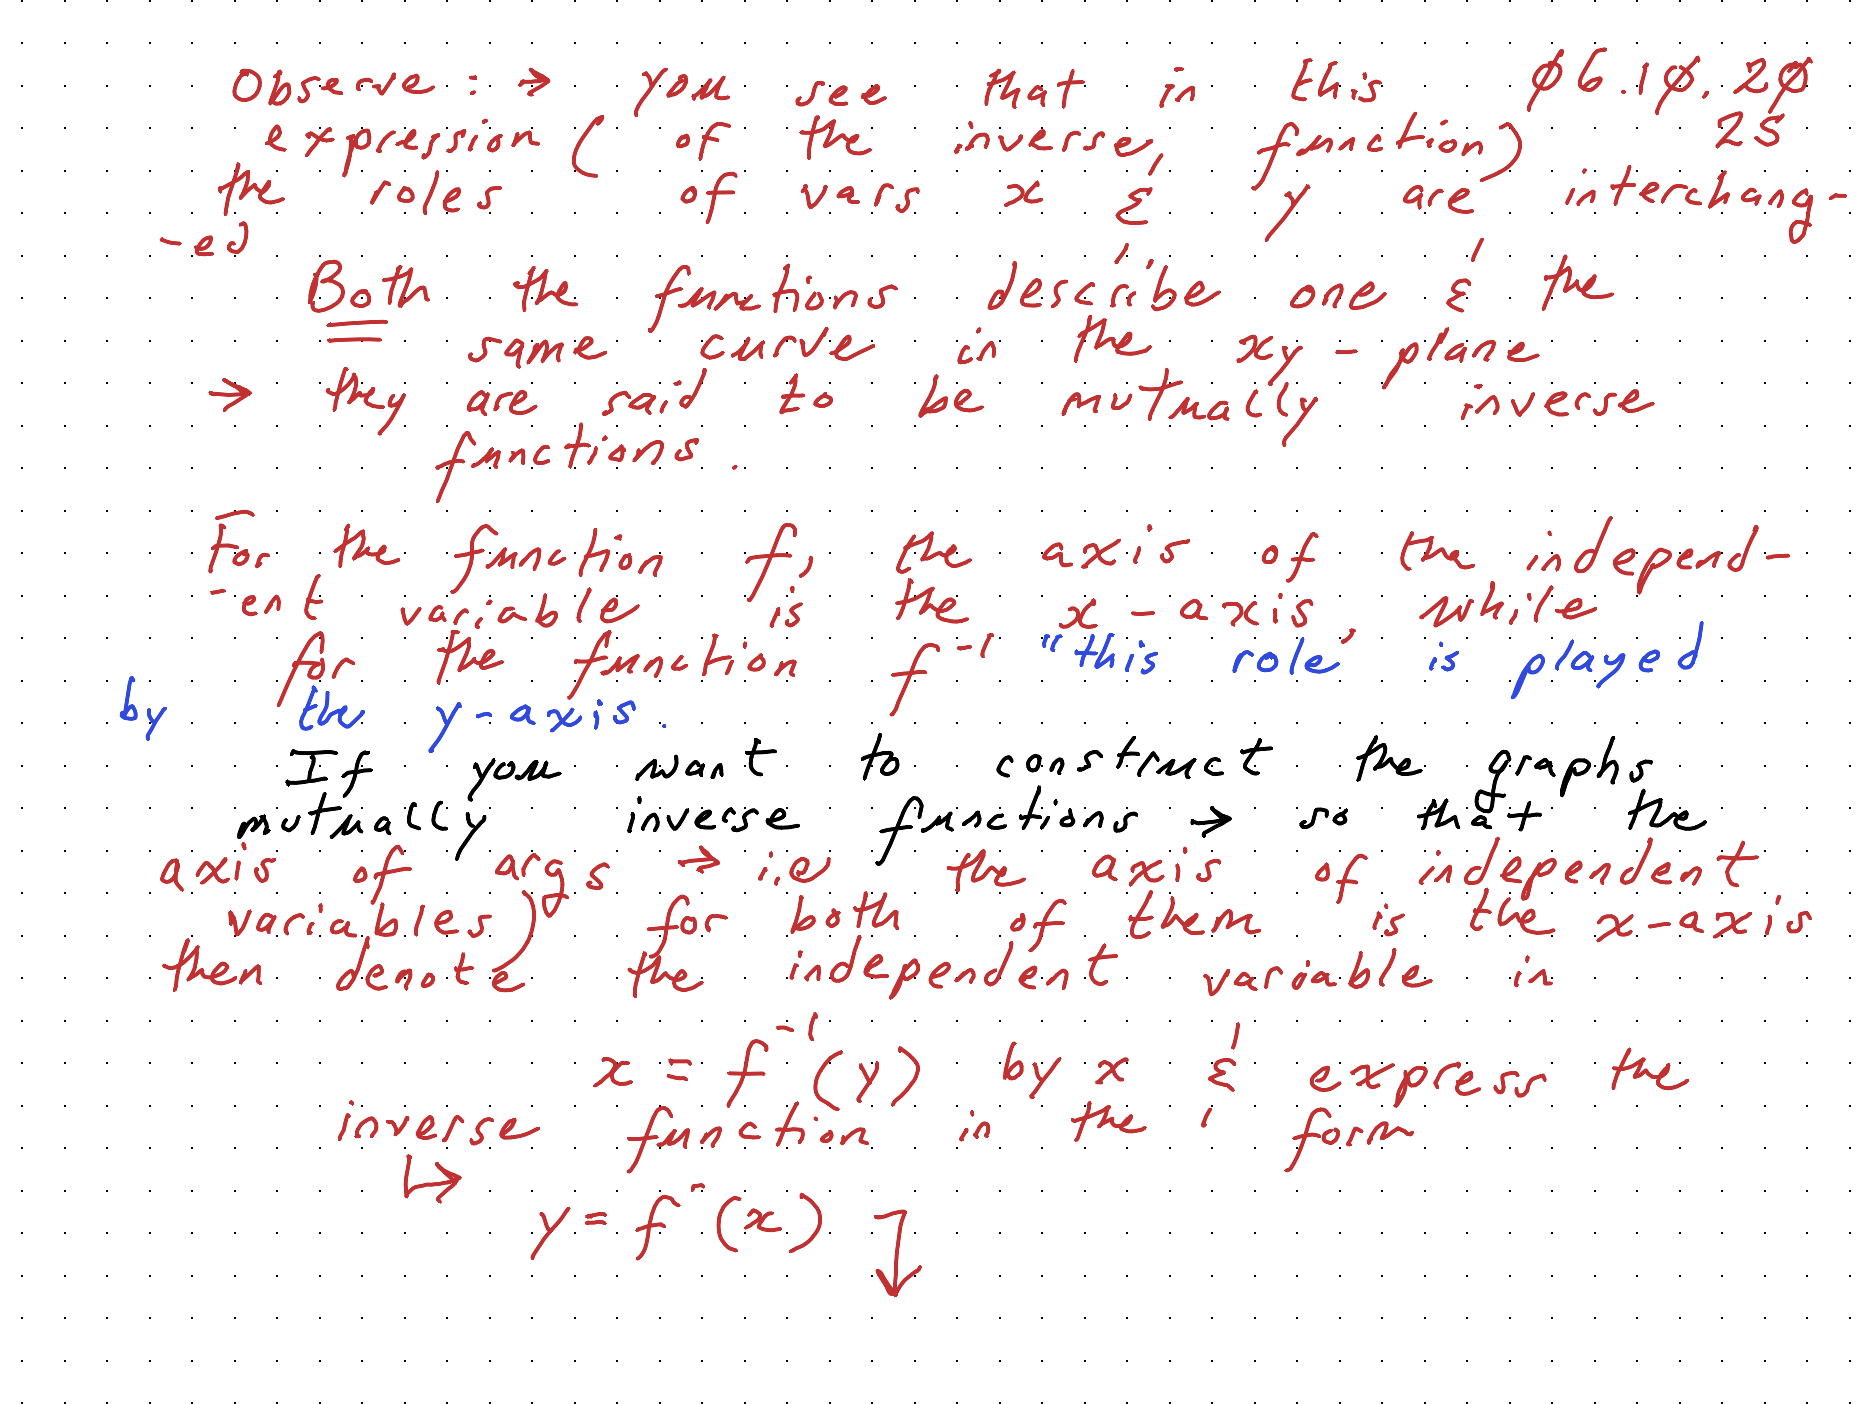 Observe : → you see that in this 06.10.20
expression ( of the inverse function) 25
the roles of vars x & y are interchang-
-ed
Both the functions describe one & the
same curve in the xy - plane
→ they are said to be mutually inverse
functions.
For the function f, the axis of the independ-
-ent variable is the x-axis, while
for the function f⁻¹ "this role" is played
by the y-axis.
If you want to construct the graphs
mutually inverse functions → so that the
axis of args → i.e the axis of independent
variables) for both of them is the x-axis
then denote the independent variable in
x = f⁻¹(y) by x & express the
inverse function in the form
↳ y = f⁻(x) ↓